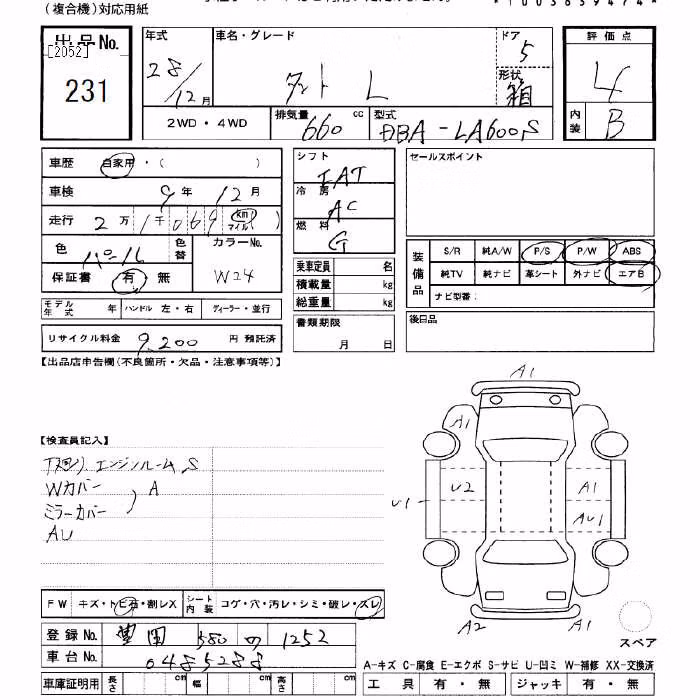 （複合機）対応用紙
出品No.
[2052]
231
年式
28/12月
車名・グレード
タント L
ドア
5
形状
箱
2WD・4WD
排気量
660 cc
型式
DBA-LA600S
評価点
4
内装
B
車歴 自家用・( )
車検 9年12月
走行 2万1千069 km マイル
色 パール 色替 カラーNo. W24
保証書 有・無
モデル年式 年 ハンドル 左・右 ディーラー・並行
リサイクル料金 9,200 円 預託済
シフト IAT
冷房 AC
燃料 G
乗車定員 名
積載量 kg
総重量 kg
書類期限
月 日
セールスポイント
装備品
S/R 純A/W P/S P/W ABS
純TV 純ナビ 革シート 外ナビ エアB
ナビ型番：
後日品
【出品店申告欄(不良箇所・欠品・注意事項等)】
【検査員記入】
エンジンルームS
Wカバー
ミラーカバー
A
AU
A1
A1
U1
U2
A1
AU1
A2
A1
スペア
FW キズ・トビ石・割レX シート内装 コゲ・穴・汚レ・シミ・破レ・スレ
登録No. 豊田 580 の 1252
車台No. 0485288
車庫証明用 長さ cm 幅 cm 高さ cm
A-キズ C-腐食 E-エクボ S-サビ U-凹ミ W-補修 XX-交換済
工具 有・無 ジャッキ 有・無